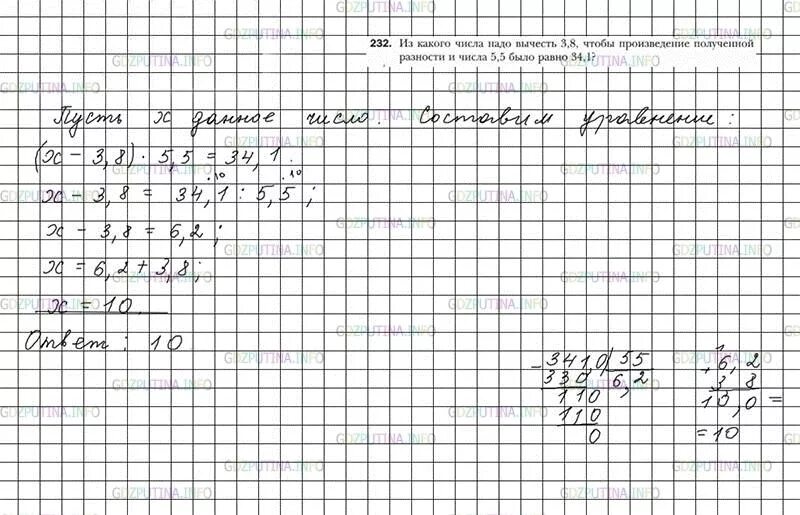 232. Из какого числа надо вычесть 3,8, чтобы произведение полученной
разности и числа 5,5 было равно 34,1?
Пусть x данное число. Составим уравнение:
(x - 3,8) · 5,5 = 34,1.
·10 ·10
x - 3,8 = 34,1 : 5,5;
x - 3,8 = 6,2;
x = 6,2 + 3,8;
x = 10.
Ответ: 10
- 341,0 | 55
330 6,2
110
110
0
1
+ 6,2
3 8
10,0 =
= 10
GDZPUTINA.INFO